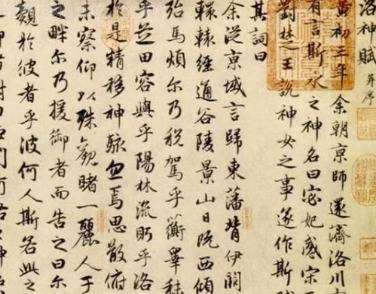 洛神賦 并序
黃初三年余朝京師還濟洛川
有言斯水之神名曰宓妃感宋
對楚之王說神女之事遂作斯
其詞曰
余從京域言歸東藩背伊闕
轘轅經通谷陵景山日既西傾
殆馬煩尔乃稅駕乎蘅皋秣
乎芝田容與乎陽林流眄乎洛
於是精移神駭忽焉思散俯
未察仰以殊觀睹一麗人于
之畔尔乃援御者而告之曰尔
覿於彼者乎彼何人斯若此之